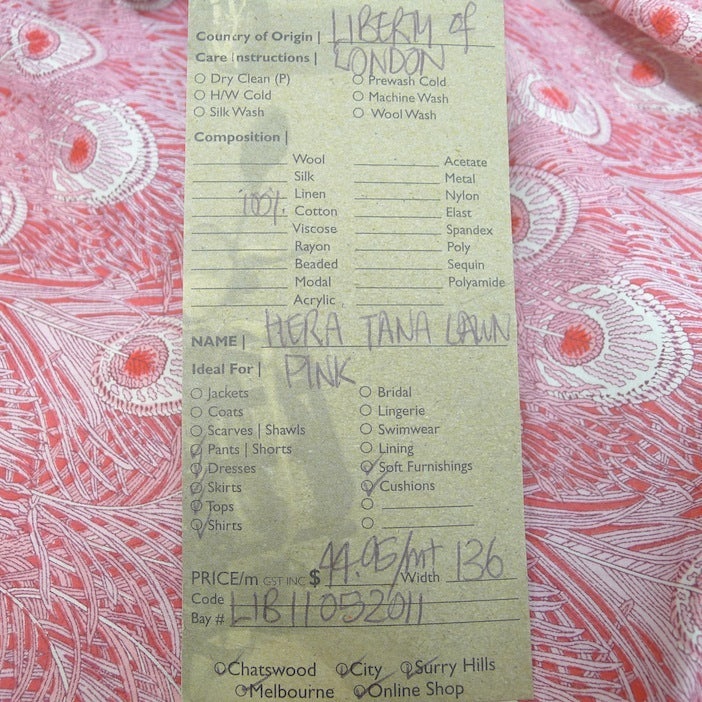 Country of Origin | LIBERTY of
Care Instructions | LONDON
Dry Clean (P) Prewash Cold
H/W Cold Machine Wash
Silk Wash Wool Wash
Composition |
Wool Acetate
Silk Metal
Linen Nylon
100% Cotton Elast
Viscose Spandex
Rayon Poly
Beaded Sequin
Modal Polyamide
Acrylic
NAME | HERA TANA LAWN
Ideal For | PINK
Jackets Bridal
Coats Lingerie
Scarves | Shawls Swimwear
Pants | Shorts Lining
Dresses Soft Furnishings
Skirts Cushions
Tops
Shirts
PRICE/m GST INC $ 44.95/mt Width 136
Code LIB11052011
Bay #
Chatswood City Surry Hills
Melbourne Online Shop